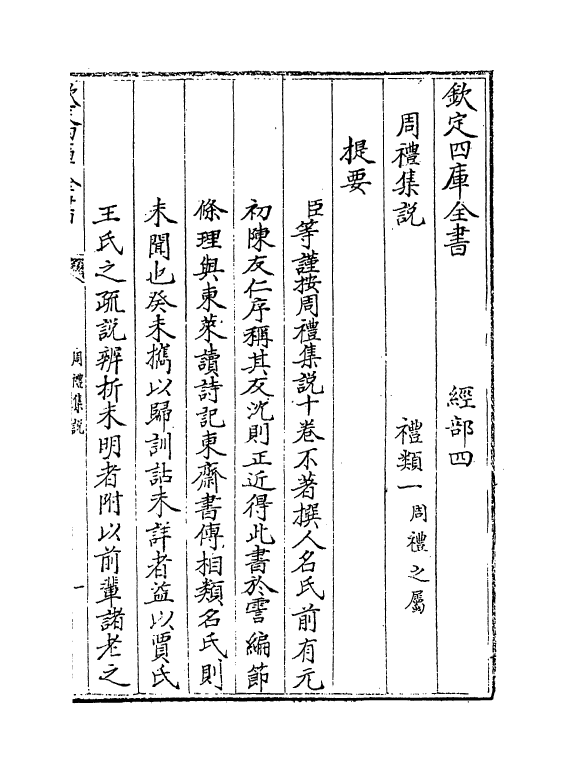 欽定四庫全書　經部四
周禮集說　禮類一周禮之屬
提要
臣等謹按周禮集說十卷不著撰人名氏前有元
初陳友仁序稱其友沈則正近得此書於霅編節
條理與東萊讀詩記東齋書傳相類名氏則
未聞也癸未攜以歸訓詁未詳者益以賈氏
王氏之疏說辨析未明者附以前輩諸老之
欽定四庫全書
周禮集說
一